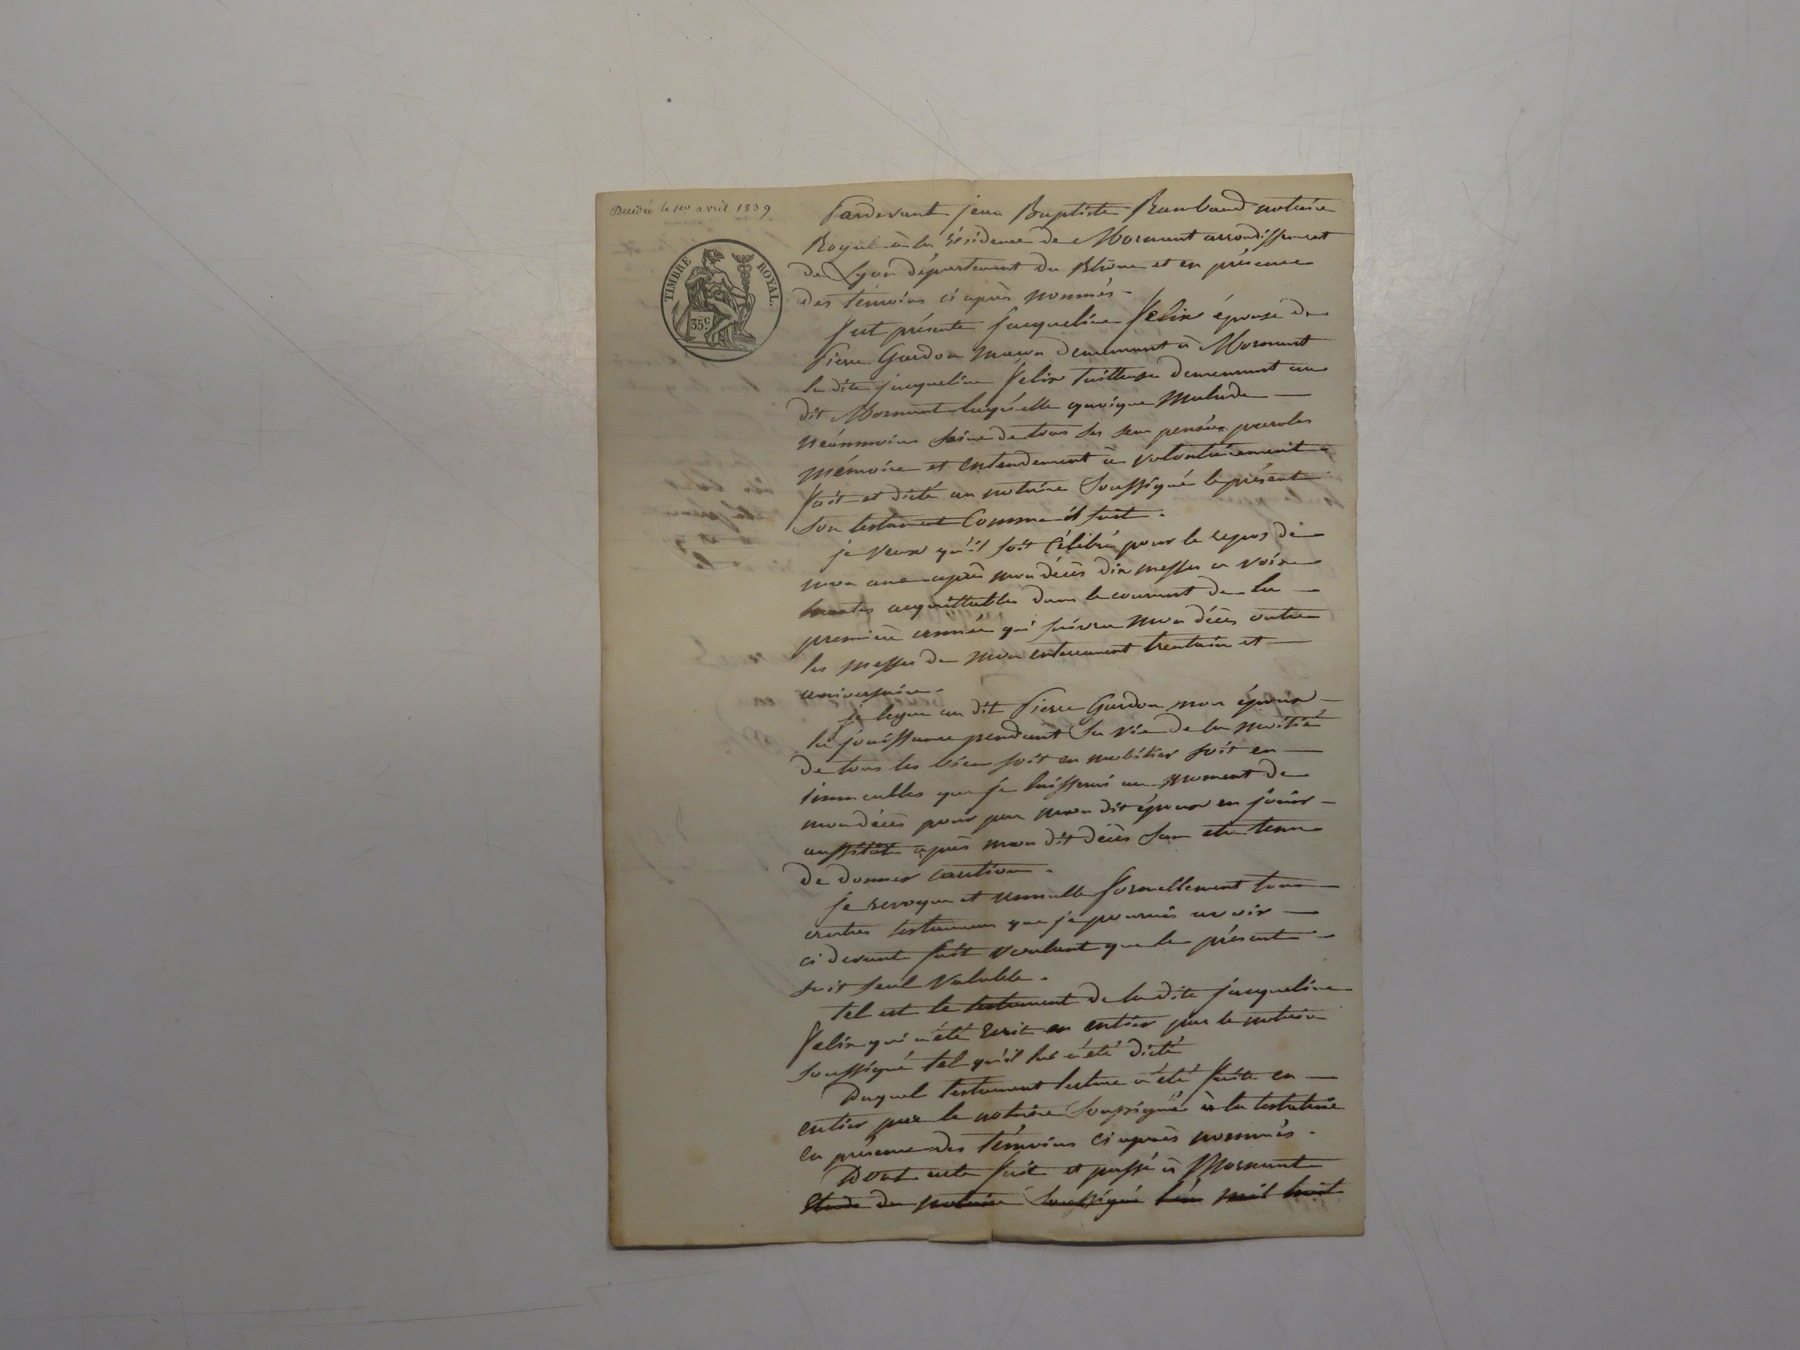 Décédée le 1er avril 1839
TIMBRE ROYAL.
35c
Pardevant jean Baptiste Rambaud notaire
Royal à la résidence de Mornant arrondissement
de Lyon département du Rhône et en présence
des témoins ci après nommés.
fut présente jacqueline Felix épouse de
pierre Gardon maçon demeurant à Mornant
la dite jacqueline Felix tailleuse demeurant au
dit Mornant laquelle quoique malade
néanmoins saine de tous ses sens pensées paroles
mémoire et entendement a volontairement
fait et dicté au notaire soussigné le présent
son testament comme il suit.
je veux qu'il soit célébré pour le repos de
mon ame après mon décès dix messes a voix
hautes acquittables dans le courrant de la
première année qui suivra mon décès outre
les messes de mon enterrement trentain et
aniversaire.
je legue au dit pierre Gardon mon époux
la jouissance pendant sa vie de la moitié
de tous les biens soit en mobilier soit en
immeubles que je laisserai au moment de
mon décès pour par mon dit époux en jouir
aussitôt après mon dit décès sans etre tenu
de donner caution.
je revoque et annulle formellement tous
autres testamens que je pourrais avoir
ci devant fait voulant que le présent
soit seul valable.
tel est le testament de la dite jacqueline
Felix qui a été écrit en entier par le notaire
soussigné tel qu'il lui a été dicté
Duquel testament lecture a été faite en
entier par le notaire soussigné à la testatrice
en présence des témoins ci après nommés.
Dont acte fait et passé à Mornant
Etude du notaire soussigné l'an mil huit